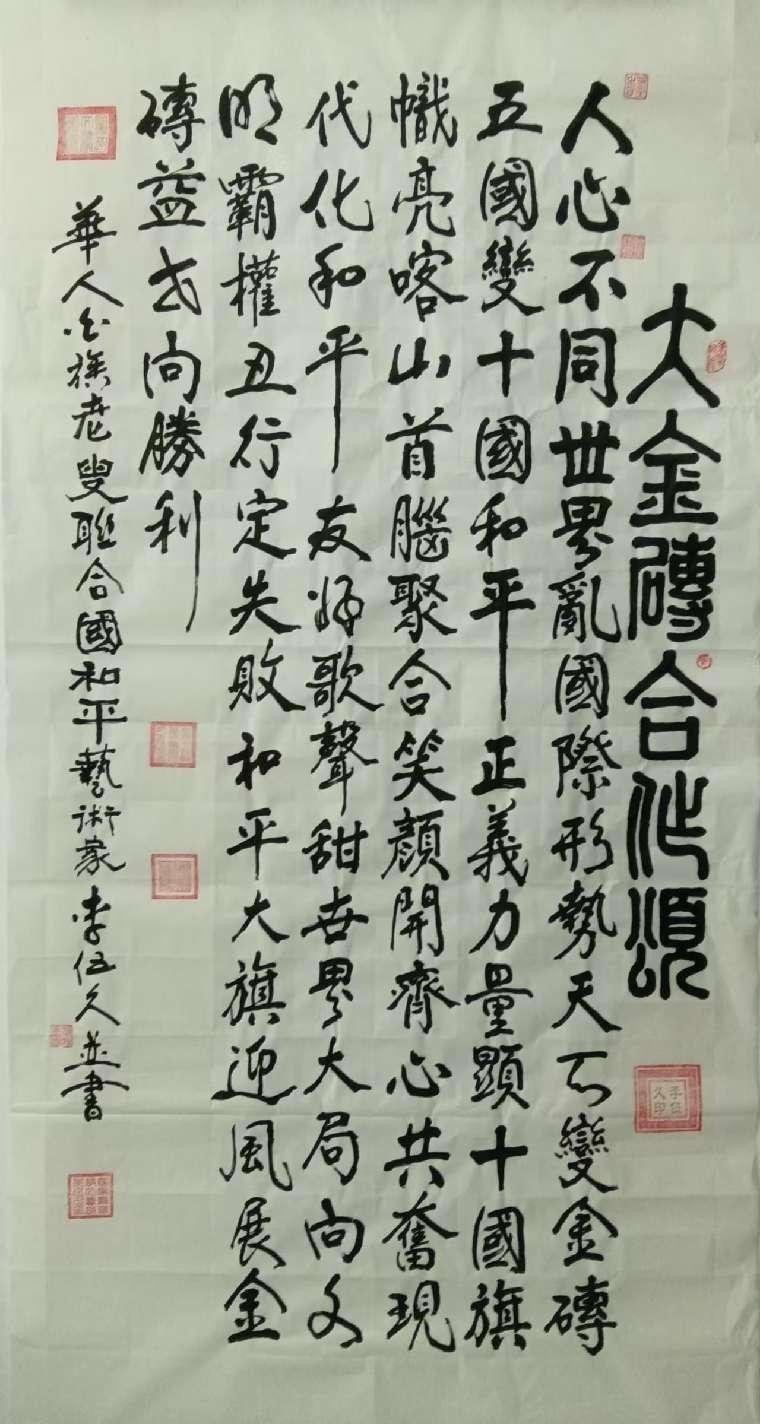 大金磚合作頌
人心不同世界亂國際形勢天變金磚
五國變十國和平正義力量顯十國旗
幟亮喀山首腦聚合笑顏開齊心共奮現
代化和平友好歌聲甜世界大局向文
明霸權丑行定失敗和平大旗迎風展金
磚益向勝利
華人族老叟聯合國和平藝術家李伍久並書
李伍久印